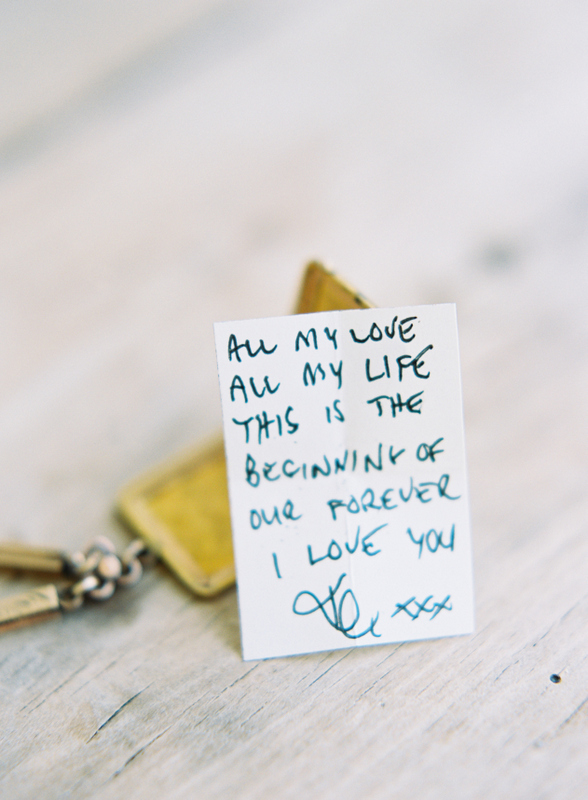 ALL MY LOVE
ALL MY LIFE
THIS IS THE
BEGINNING OF
OUR FOREVER
I LOVE YOU
xxx